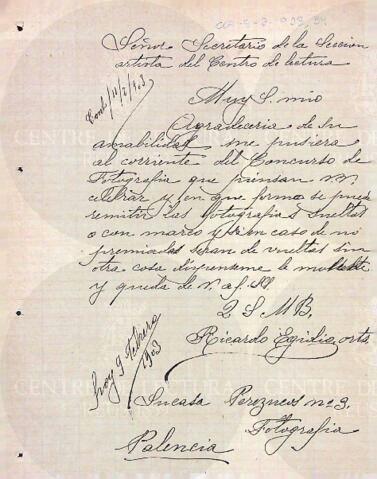 Señor Secretario de la Seccion
artista del Centro de lectura
Cont. 11/2/903
Muy S. mio
Agradeceria de su
amabilidad me pusiera
al corriente del Concurso de
Fotografia que piensan V.V.
celebrar y en que forma se puede
remitir las fotografias sueltas
o con marco y si en caso de no
premiadas seran de vueltas sin
otra cosa dispenseme la moleste
y queda de V. a.f. SS
Q S M B.
Ricardo Egidio, orts
hoy 9 Febrero
1903
Sucasa nº 9.
Fotografia
Palencia